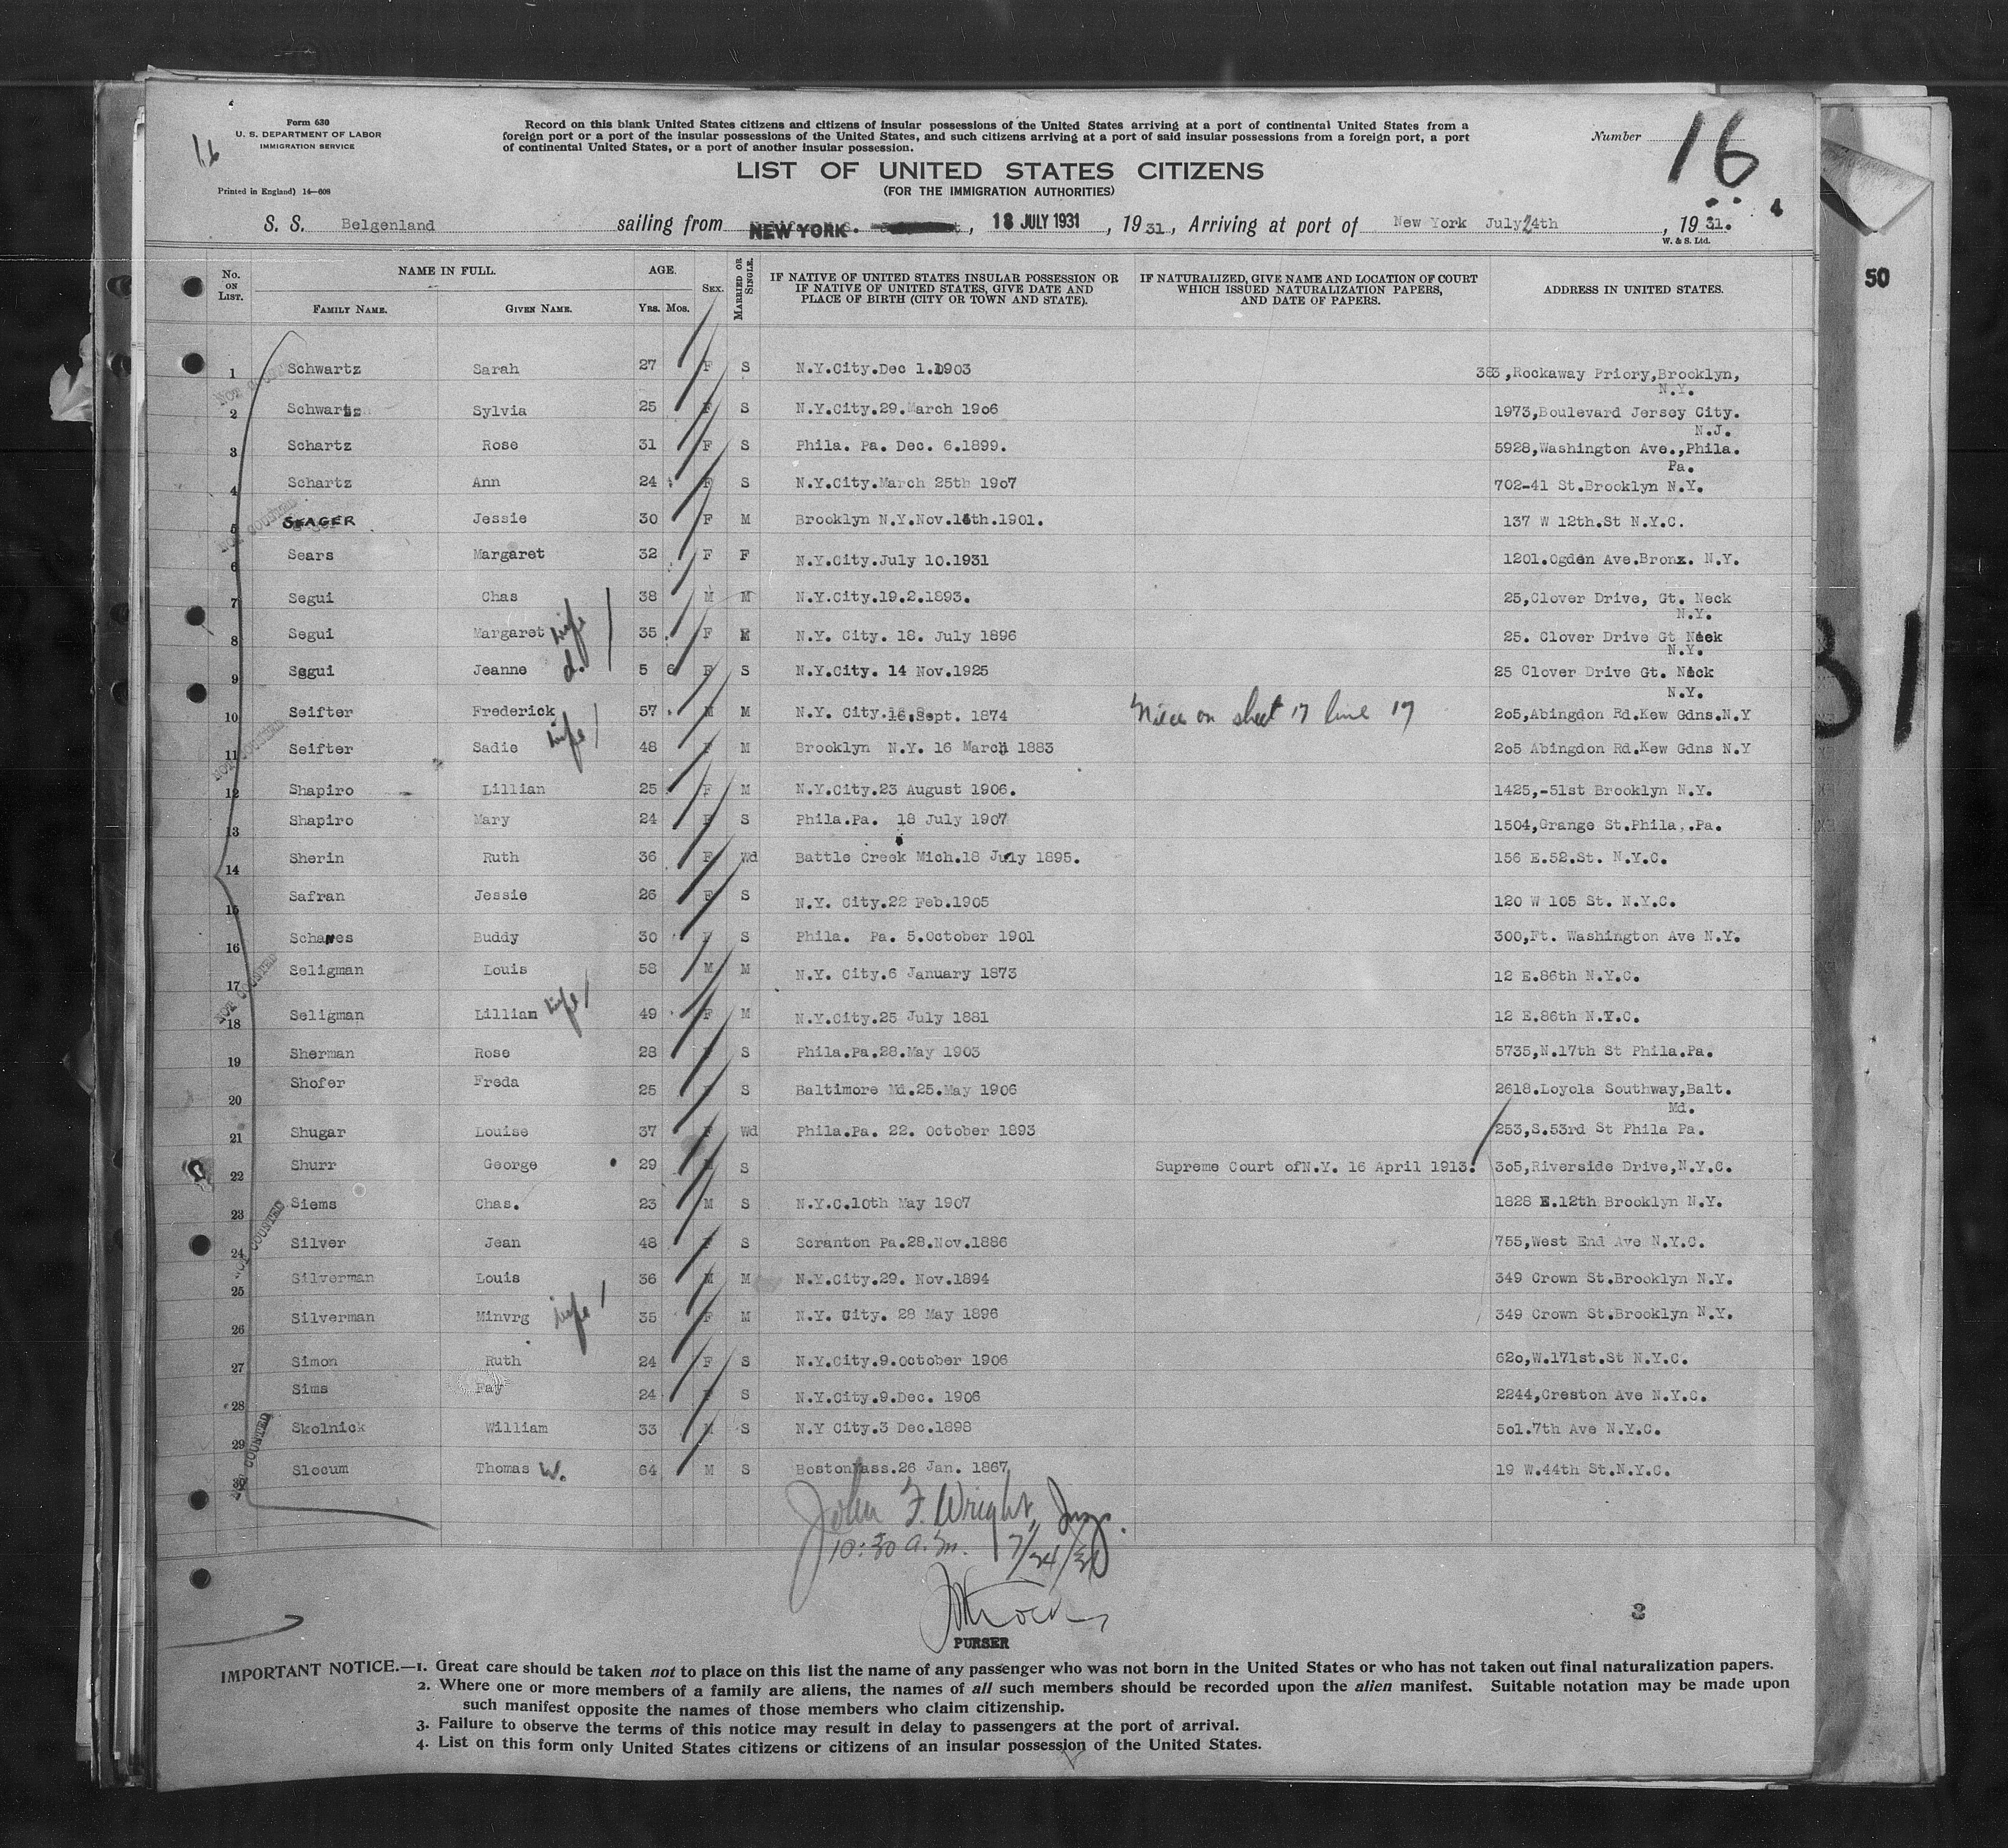 Form 630
U. S. DEPARTMENT OF LABOR
IMMIGRATION SERVICE
Printed in England) 14—608
Record on this blank United States citizens and citizens of insular possessions of the United States arriving at a port of continental United States from a
foreign port or a port of the insular possessions of the United States, and such citizens arriving at a port of said insular possessions from a foreign port, a port
of continental United States, or a port of another insular possession.
Number 16
LIST OF UNITED STATES CITIZENS
(FOR THE IMMIGRATION AUTHORITIES)
S. S. Belgenland sailing from NEW YORK , 18 JULY 1931 , 1931, Arriving at port of New York July 24th , 1931.
W. & S. Ltd.
50
No. ON LIST. NAME IN FULL. FAMILY NAME. GIVEN NAME. AGE. YRS. MOS. SEX. MARRIED OR SINGLE. IF NATIVE OF UNITED STATES INSULAR POSSESSION OR IF NATIVE OF UNITED STATES, GIVE DATE AND PLACE OF BIRTH (CITY OR TOWN AND STATE). IF NATURALIZED, GIVE NAME AND LOCATION OF COURT WHICH ISSUED NATURALIZATION PAPERS, AND DATE OF PAPERS. ADDRESS IN UNITED STATES.
1 Schwartz Sarah 27 F S N.Y.City.Dec 1.1903 383,Rockaway Priory,Brooklyn, N.Y.
2 Schwartz Sylvia 25 F S N.Y.City.29.March 1906 1973,Boulevard Jersey City. N.J.
3 Schartz Rose 31 F S Phila. Pa. Dec. 6.1899. 5928,Washington Ave.,Phila. Pa.
4 Schartz Ann 24 F S N.Y.City.March 25th 1907 702-41 St.Brooklyn N.Y.
5 SEAGER Jessie 30 F M Brooklyn N.Y.Nov.18th.1901. 137 W 12th.St N.Y.C.
6 Sears Margaret 32 F F N.Y.City.July 10.1931 1201.Ogden Ave.Bronx. N.Y.
7 Segui Chas 38 M M N.Y.City.19.2.1893. 25,Clover Drive, Gt. Neck N.Y.
8 Segui Margaret wife 35 F M N.Y. City. 18. July 1896 25. Clover Drive Gt Neck N.Y.
9 Segui Jeanne d. 5 6 F S N.Y.City. 14 Nov.1925 25 Clover Drive Gt. Neck N.Y.
10 Seifter Frederick 57 M M N.Y. City.16.Sept. 1874 Niece on sheet 17 line 17 205,Abingdon Rd.Kew Gdns.N.Y
11 Seifter Sadie wife 48 F M Brooklyn N.Y. 16 March 1883 205 Abingdon Rd.Kew Gdns N.Y
12 Shapiro Lillian 25 F M N.Y.City.23 August 1906. 1425,-51st Brooklyn N.Y.
13 Shapiro Mary 24 F S Phila.Pa. 18 July 1907 1504,Grange St.Phila,.Pa.
14 Sherin Ruth 36 F Wd Battle Creek Mich.18 July 1895. 156 E.52.St. N.Y.C.
15 Safran Jessie 26 F S N.Y. City.22 Feb.1905 120 W 105 St. N.Y.C.
16 Schanes Buddy 30 F S Phila. Pa. 5.October 1901 300,Ft. Washington Ave N.Y.
17 Seligman Louis 58 M M N.Y. City.6 January 1873 12 E.86th N.Y.C.
18 Seligman Lillian wife 49 F M N.Y.City.25 July 1881 12 E.86th N.Y.C.
19 Sherman Rose 28 F S Phila.Pa.28.May 1903 5735,N.17th St Phila.Pa.
20 Shofer Freda 25 F S Baltimore Md.25.May 1906 2618.Loyola Southway,Balt. Md.
21 Shugar Louise 37 F Wd Phila.Pa. 22. October 1893 253,S.53rd St Phila Pa.
22 Shurr George 29 M S Supreme Court ofN.Y. 16 April 1913. 305,Riverside Drive,N.Y.C.
23 Siems Chas. 23 M S N.Y.C.10th May 1907 1828 E.12th Brooklyn N.Y.
24 Silver Jean 48 F S Scranton Pa.28.Nov.1886 755,West End Ave N.Y.C.
25 Silverman Louis 36 M M N.Y.City.29. Nov.1894 349 Crown St.Brooklyn N.Y.
26 Silverman Minvrg wife 35 F M N.Y. City. 28 May 1896 349 Crown St.Brooklyn N.Y.
27 Simon Ruth 24 F S N.Y.City.9.October 1906 620,W.171st.St N.Y.C.
28 Sims Fay 24 F S N.Y.City.9.Dec. 1906 2244,Creston Ave N.Y.C.
29 Skolnick William 33 M S N.Y City.3 Dec.1898 501.7th Ave N.Y.C.
30 Slocum Thomas W. 64 M S Boston Mass.26 Jan. 1867 19 W.44th St.N.Y.C.
NOT COUNTED
NOT COUNTED
NOT COUNTED
NOT COUNTED
NOT COUNTED
NOT COUNTED
John F. Wright, Insp.
10:30 a.m. 7/24/31
PURSER
3
IMPORTANT NOTICE.—1. Great care should be taken not to place on this list the name of any passenger who was not born in the United States or who has not taken out final naturalization papers.
2. Where one or more members of a family are aliens, the names of all such members should be recorded upon the alien manifest. Suitable notation may be made upon
such manifest opposite the names of those members who claim citizenship.
3. Failure to observe the terms of this notice may result in delay to passengers at the port of arrival.
4. List on this form only United States citizens or citizens of an insular possession of the United States.